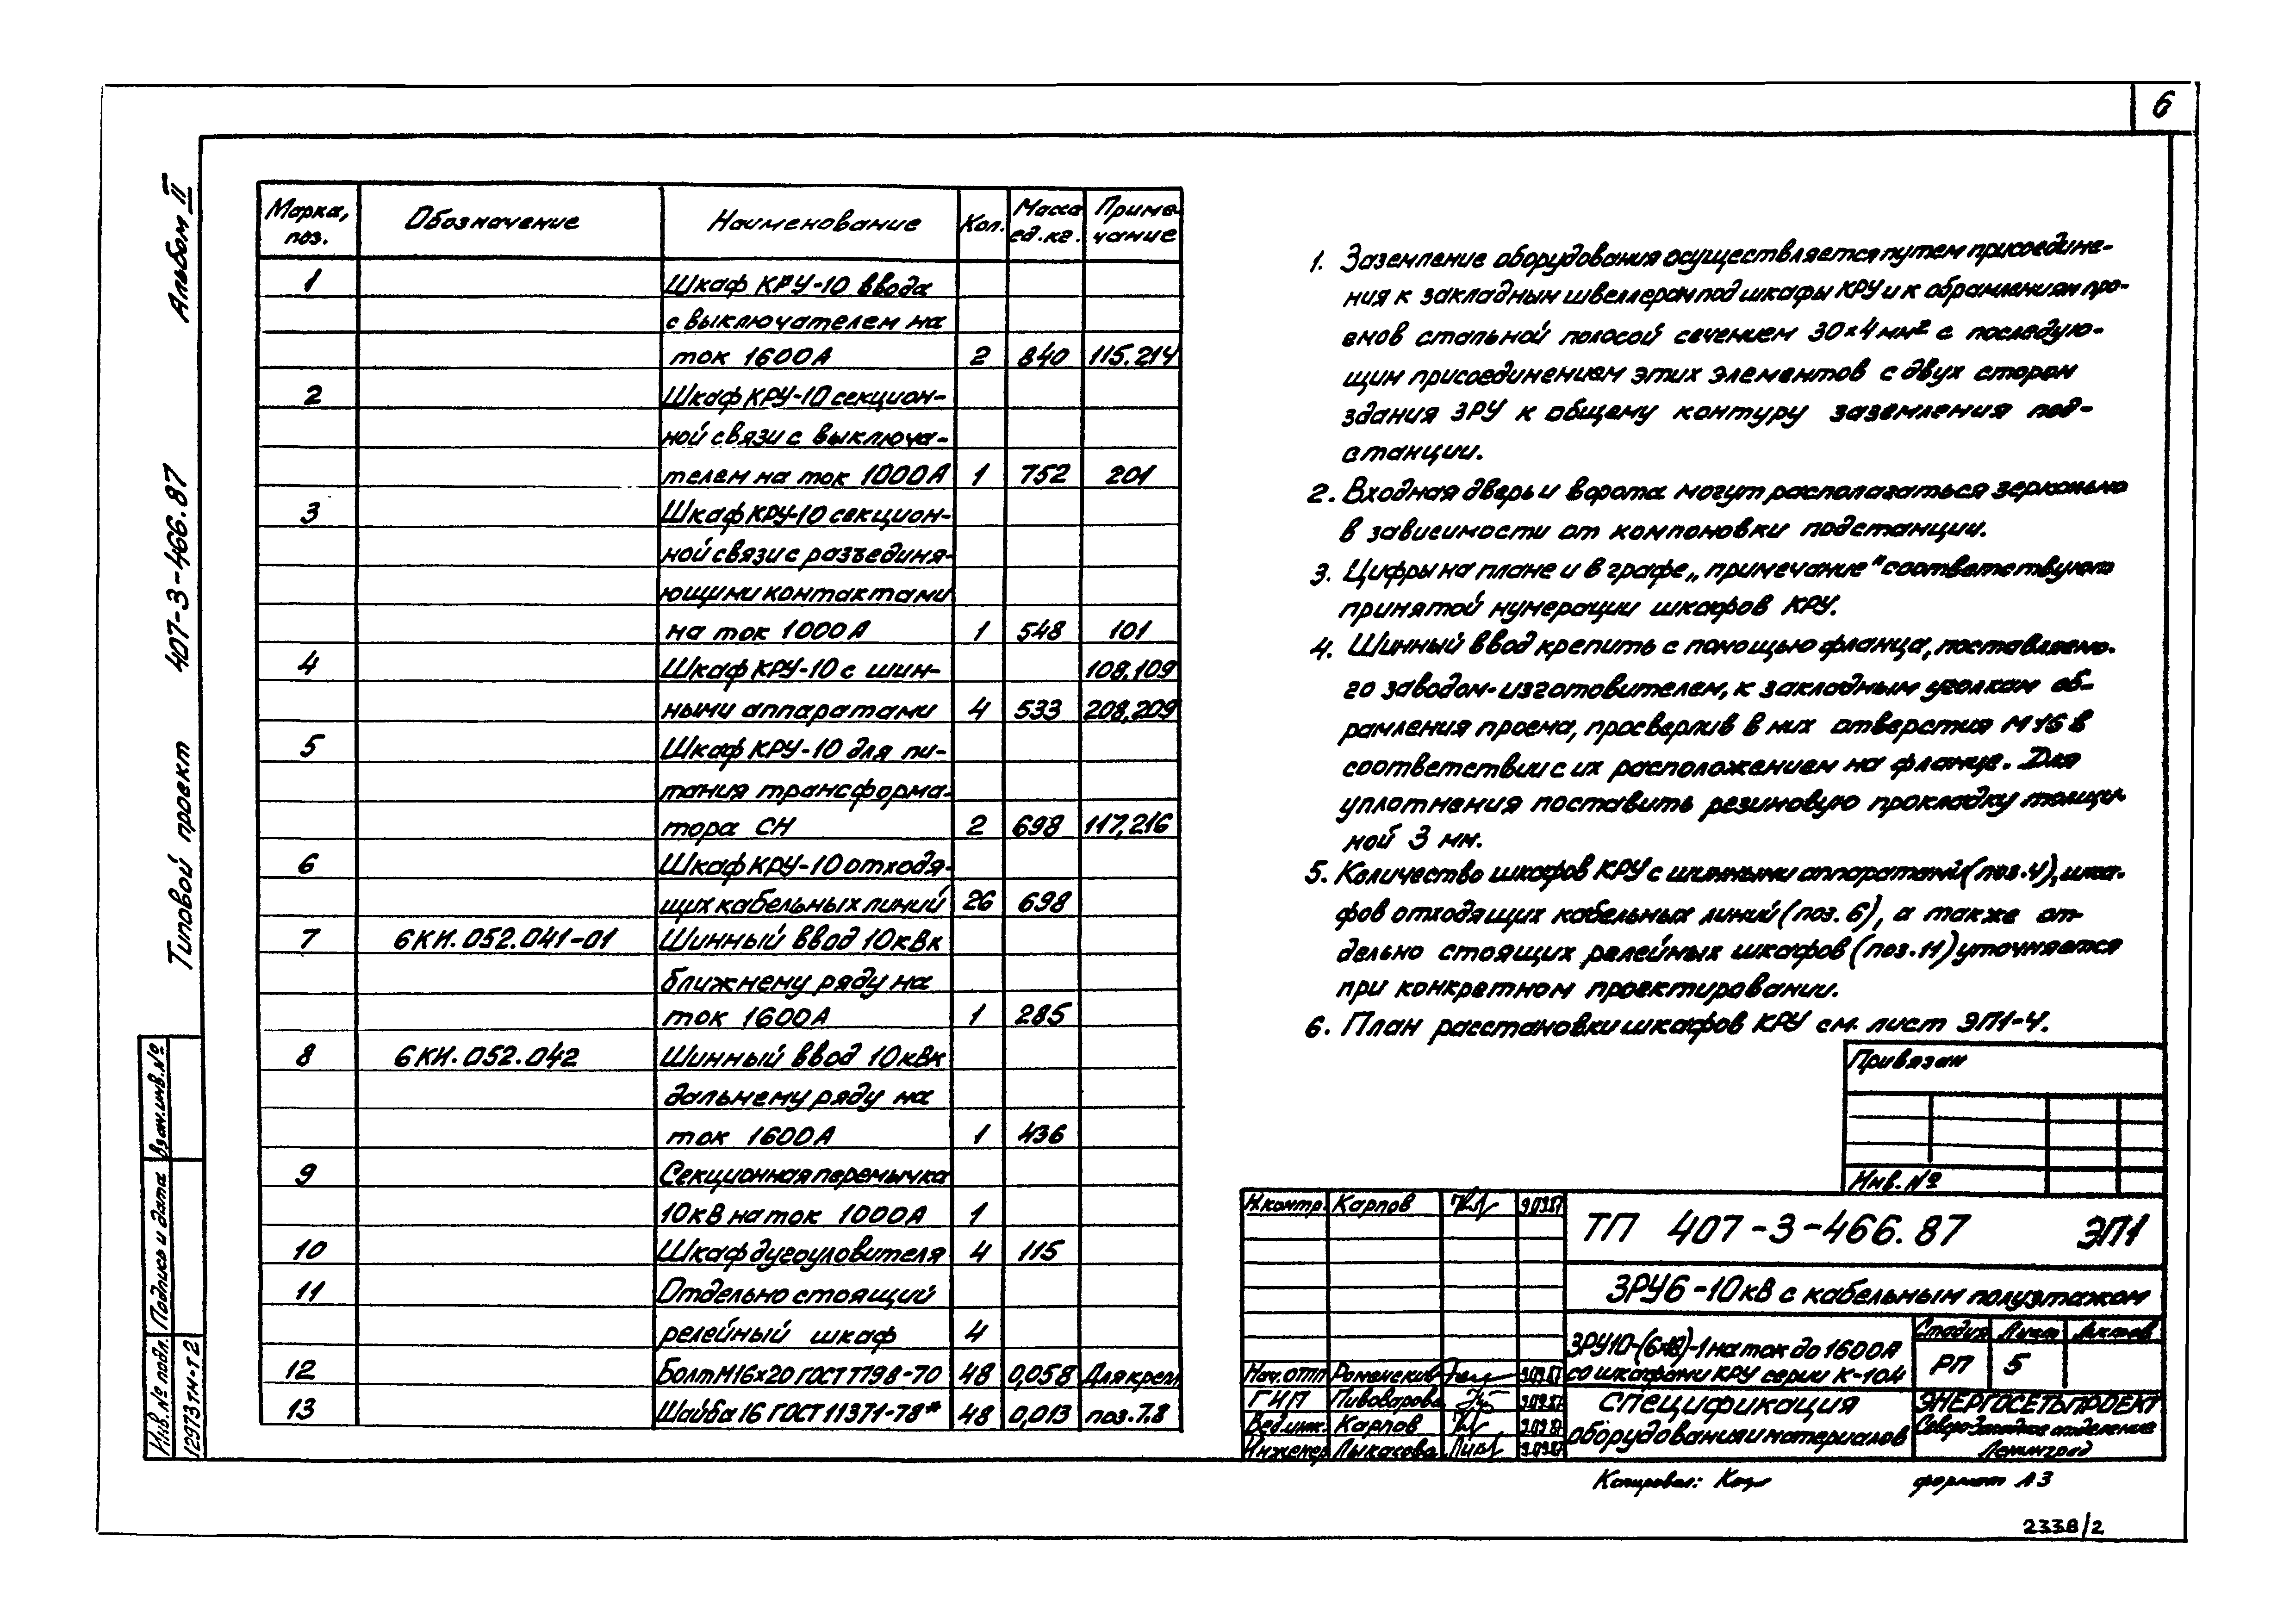 6
Альбом II
407-3-466.87
Типовой проект
Взам.инв.№
Подпись и дата
Инв.№ подл.
12973тм-т2
Марка, поз. Обозначение Наименование Кол. Масса ед.кг. Приме-чание
1 Шкаф КРУ-10 ввода
с выключателем на
ток 1600А 2 840 115.214
2 Шкаф КРУ-10 секцион-
ной связи с выключа-
телем на ток 1000А 1 752 201
3 Шкаф КРУ-10 секцион-
ной связи с разъединя-
ющими контактами
на ток 1000А 1 548 101
4 Шкаф КРУ-10 с шин- 108,109
ными аппаратами 4 533 208,209
5 Шкаф КРУ-10 для пи-
тания трансформа-
тора СН 2 698 117,216
6 Шкаф КРУ-10 отходя-
щих кабельных линий 26 698
7 6КИ.052.041-01 Шинный ввод 10кВ к
ближнему ряду на
ток 1600А 1 285
8 6КИ.052.042 Шинный ввод 10кВ к
дальнему ряду на
ток 1600А 1 436
9 Секционная перемычка
10кВ на ток 1000А 1
10 Шкаф дугоуловителя 4 115
11 Отдельно стоящий
релейный шкаф 4
12 Болт М16х20 ГОСТ 7798-70 48 0,058 Для крепл
13 Шайба 16 ГОСТ 11371-78* 48 0,013 поз.7,8
1. Заземление оборудования осуществляется путем присоедине-
ния к закладным швеллерам под шкафы КРУ и к обрамлениям про-
емов стальной полосой сечением 30×4 мм² с последую-
щим присоединением этих элементов с двух сторон
здания ЗРУ к общему контуру заземления под-
станции.
2. Входная дверь и ворота могут располагаться зеркально
в зависимости от компоновки подстанции.
3. Цифры на плане и в графе „примечание" соответствуют
принятой нумерации шкафов КРУ.
4. Шинный ввод крепить с помощью фланца, поставляемо-
го заводом-изготовителем, к закладным уголкам об-
рамления проема, просверлив в них отверстия М16 в
соответствии с их расположением на фланце. Для
уплотнения поставить резиновую прокладку толщи-
ной 3 мм.
5. Количество шкафов КРУ с шинными аппаратами (поз.4), шка-
фов отходящих кабельных линий (поз. 6), а также от-
дельно стоящих релейных шкафов (поз.11) уточняется
при конкретном проектировании.
6. План расстановки шкафов КРУ см. лист ЭП1-4.
Привязан
Инв.№
Н.контр. Карпов 9.09.87
ТП 407-3-466.87 ЭП1
ЗРУ6-10кВ с кабельным полуэтажом
ЗРУ10-(6×8)-1 на ток до 1600А
со шкафами КРУ серии К-104
Стадия Лист Листов
РП 5
Нач.отп Роменский 9.09.87
ГИП Пивоварова 9.09.87
Вед.инж. Карпов 9.09.87
Инженер Лыкасова 9.09.87
Спецификация
оборудования и материалов
ЭНЕРГОСЕТЬПРОЕКТ
Северо-Западное отделение
Ленинград
Копировал: формат А3
2338/2